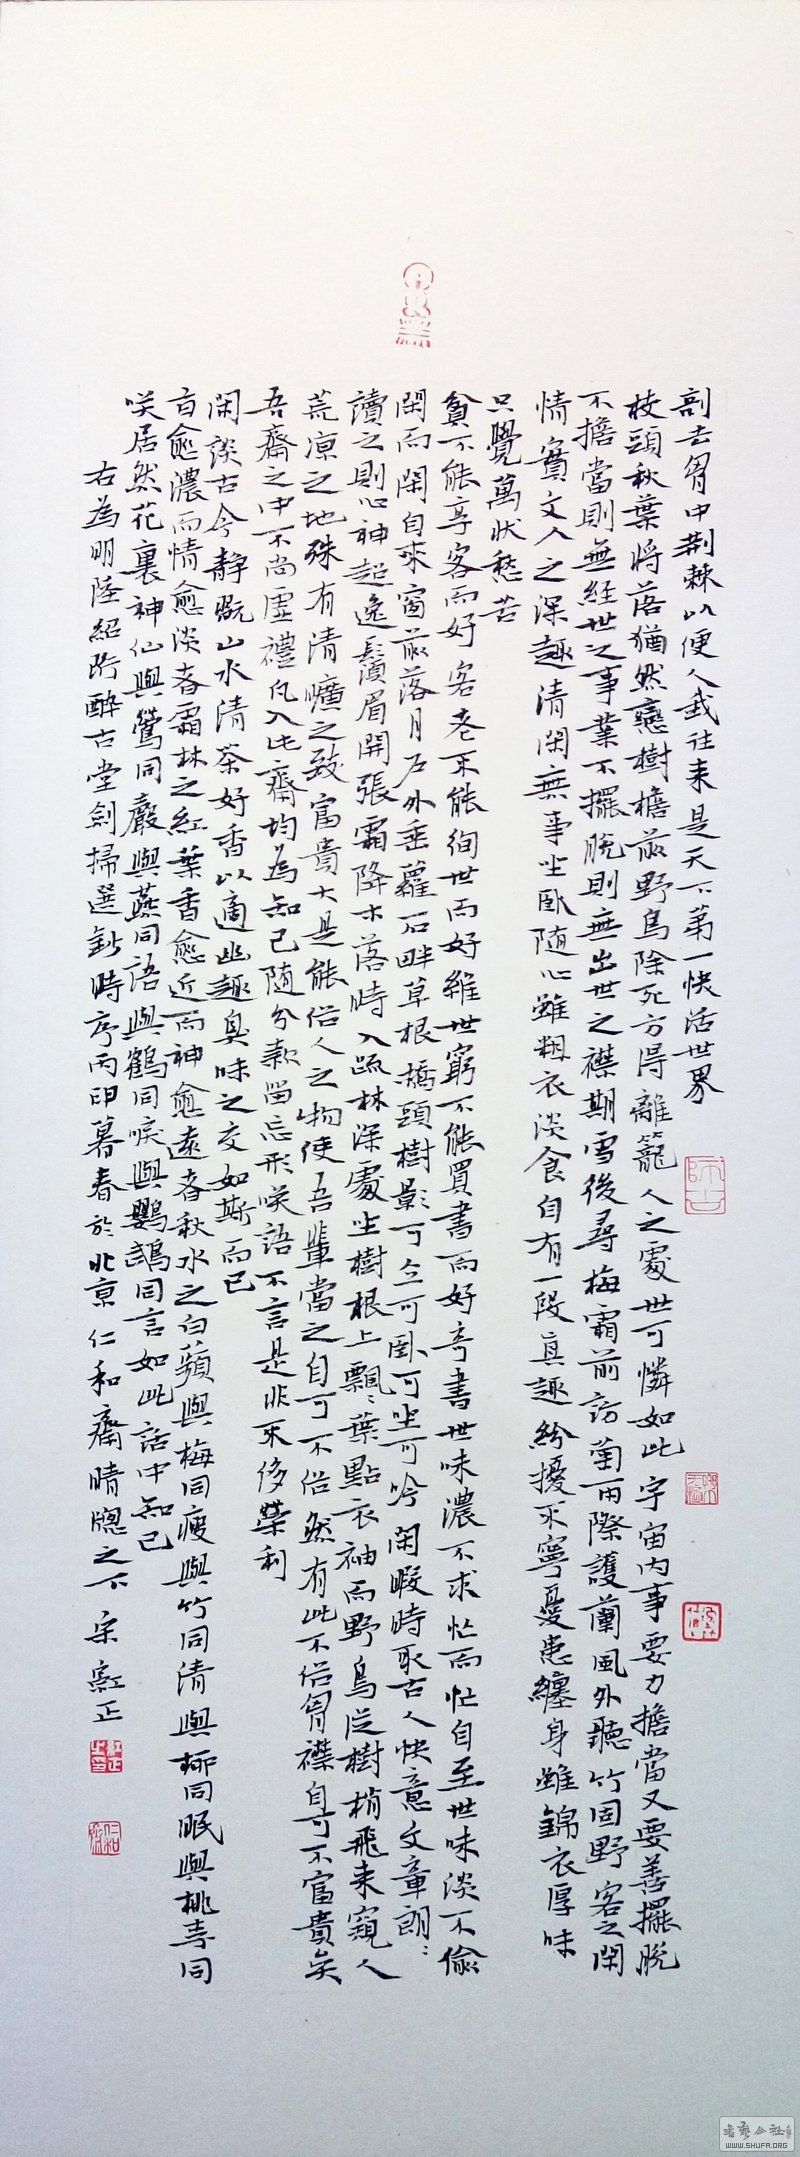 剖去胷中荆棘以便人我往来是天下第一快活世界
枝頭秋葉將落猶然戀樹檐前野鳥除死方得離籠人之處世可憐如此宇宙内事要力擔當又要善擺脱
不擔當則無經世之事業不擺脱則無出世之襟期雪後尋梅霜前訪菊雨際護蘭風外聽竹固野客之閑
情實文人之深趣清閑無事坐卧随心雖粗衣淡食自有一段真趣紛擾不寧憂患纏身雖錦衣厚味
只覺萬状愁苦
貧不能享客而好客老不能徇世而好維世窮不能買書而好奇書世味濃不求忙而忙自至世味淡不偷
閑而閑自來窗前落月户外垂蘿石畔草根橋頭樹影可立可卧可坐可吟閑暇時取古人快意文章朗〻
讀之則心神超逸鬚眉開張霜降木落時入疏林深處坐樹根上飄〻葉點衣袖而野鳥從樹梢飛来窺人
荒凉之地殊有清曠之致富貴大是能俗人之物使吾輩當之自可不俗然有此不俗胷襟自可不富貴矣
吾齋之中不尚虚禮凡入此齋均為知己随分款留忘形咲語不言是非不侈榮利
閑談古今静翫山水清茶好香以適幽趣臭味之交如斯而已
言愈濃而情愈淡者霜林之紅葉香愈近而神愈遠者秋水之白蘋與梅同瘦與竹同清與柳同眠與桃李同
咲居然花裏神仙與鶯同聲與燕同語與鶴同唳與鸚鵡同言如此話中知己
右為明陸紹珩醉古堂劍掃選鈔時序丙申暮春於北京仁和齋晴牕之下宋
正
師古
仁和
书艺公社
WWW.SHUFA.ORG